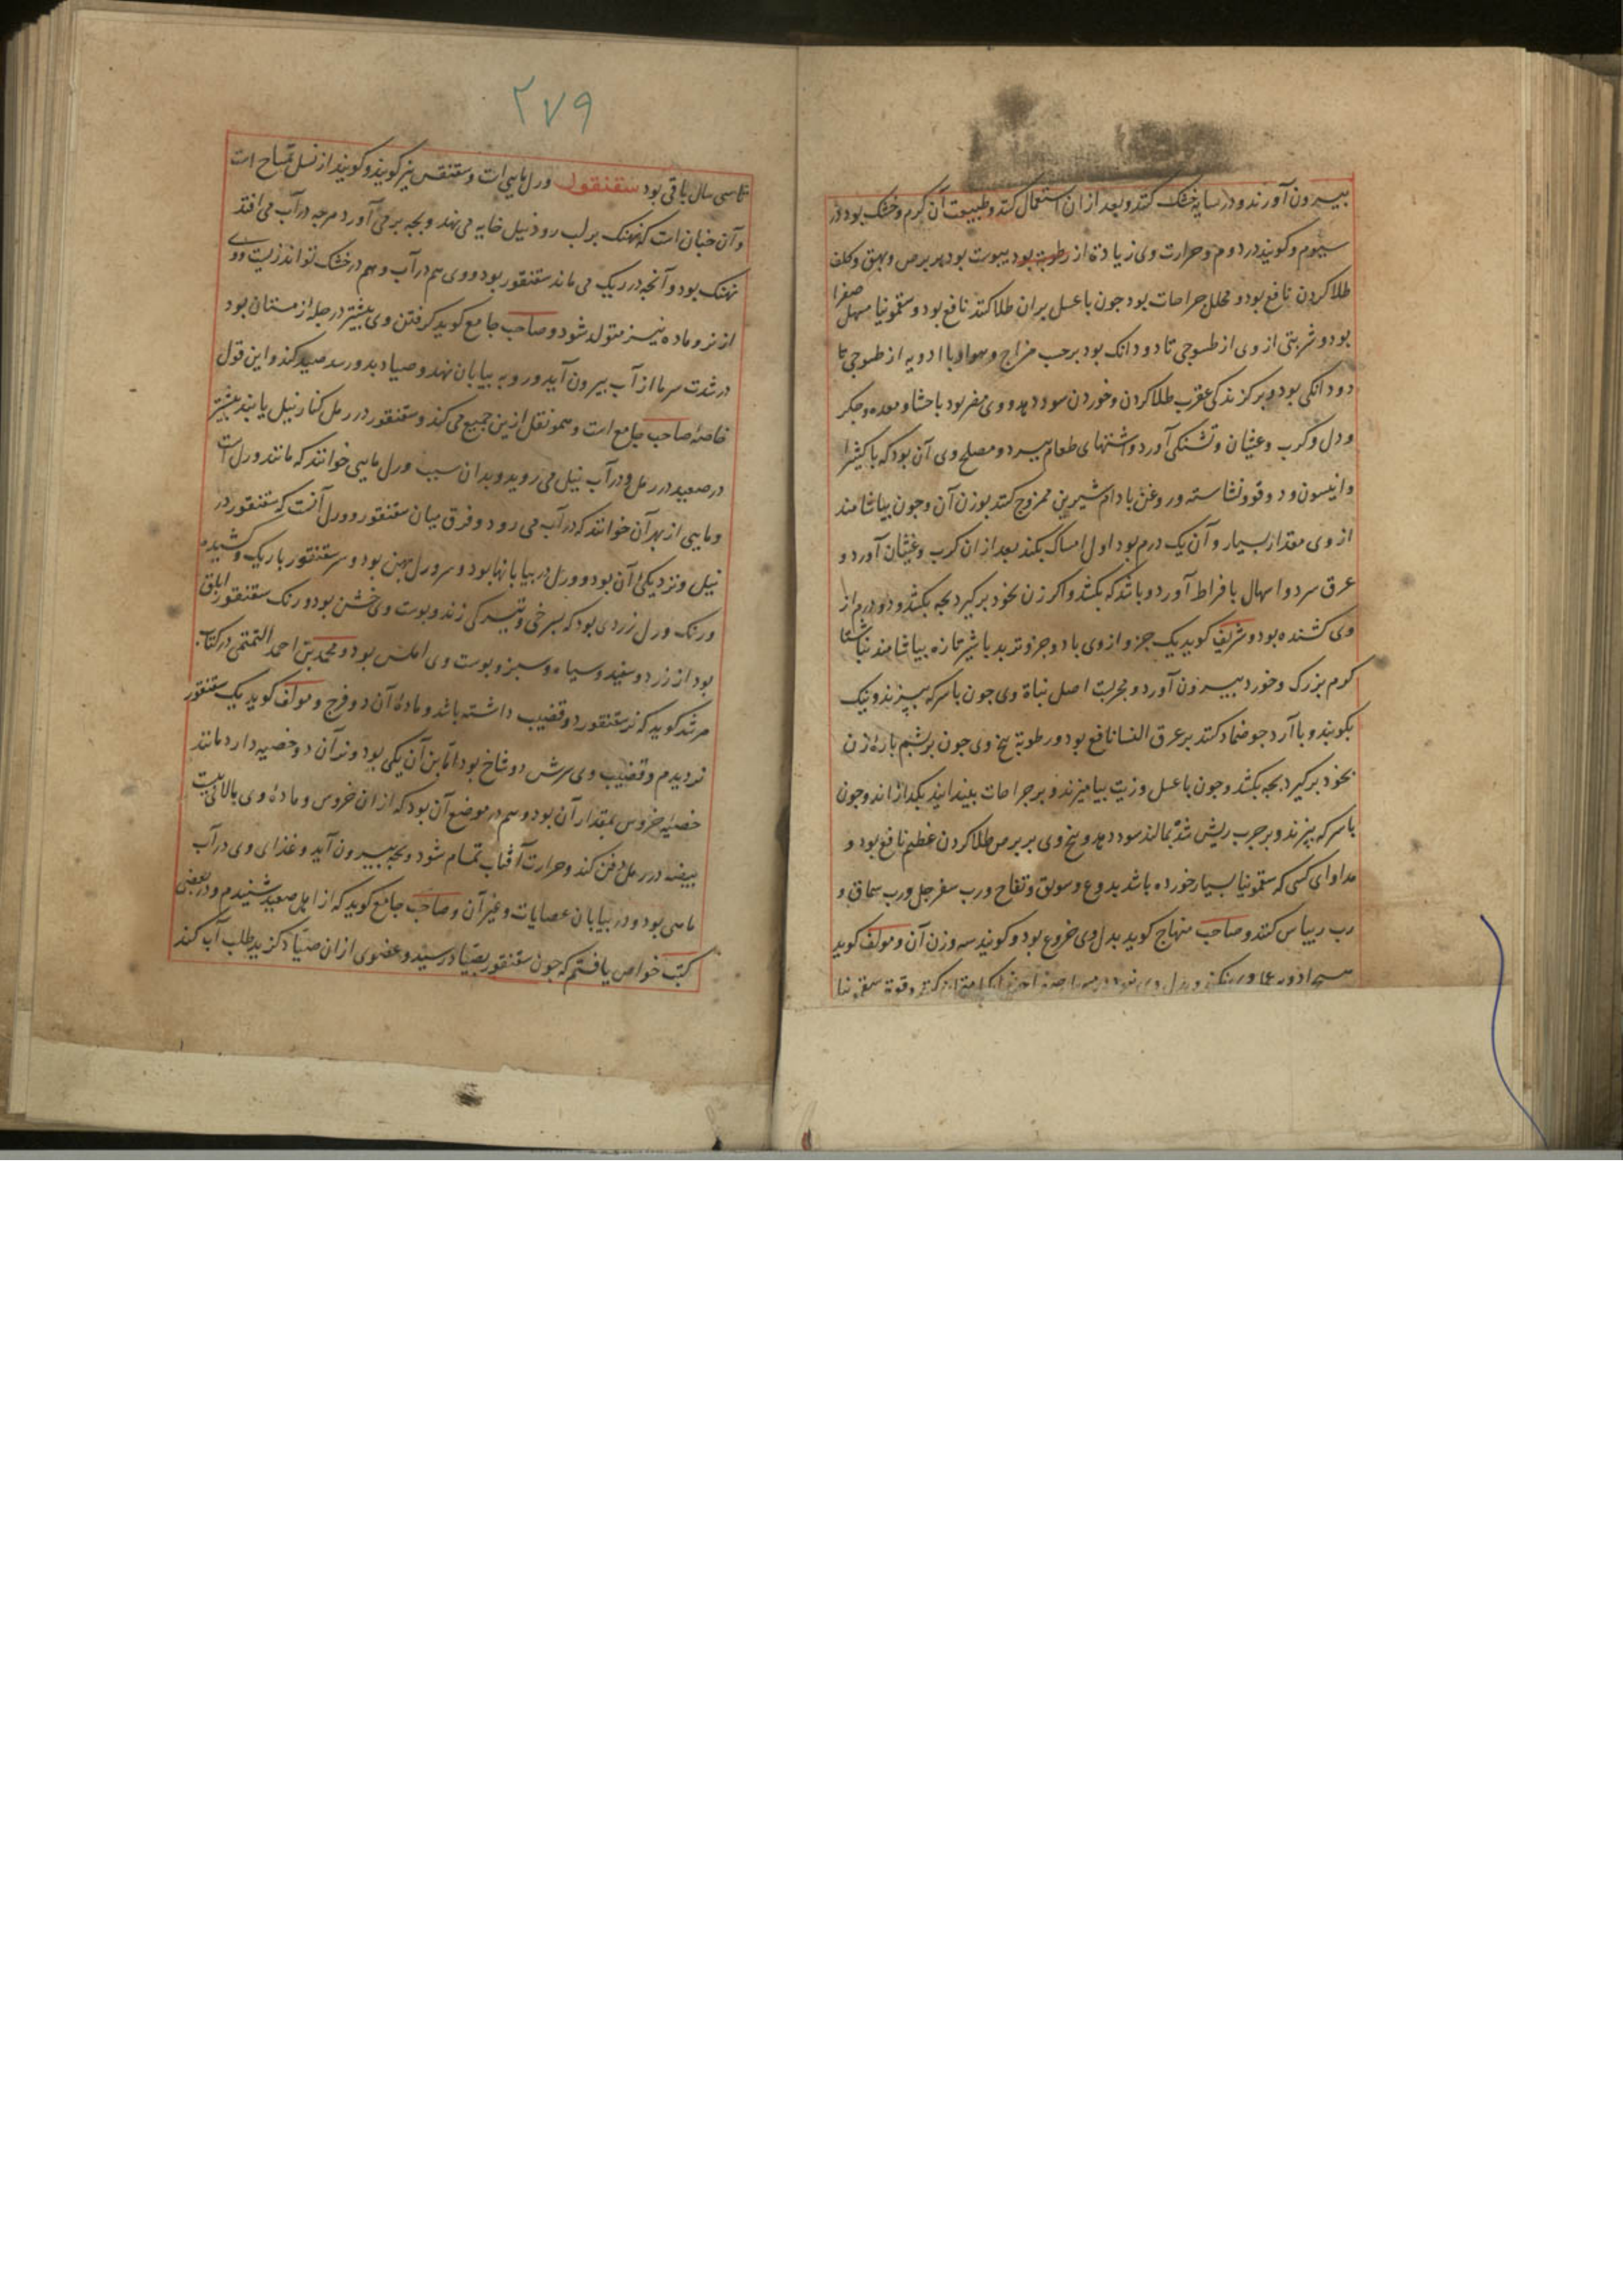 بیرون آورند و در سایه خشک کنند و بعد از ان استعمال کنند و طبیعت آن کرم و خشک بود در
سیوم و کویند در دوم و حرارت وی زیادة از رطوبة بود یبوست بود بر برص و بهق و کلف
طلا کردن نافع بود و محلل جراحات بود جون با عسل بران طلا کنند نافع بود و سقمونیا مسهل صفرا
بود و شربتی از وی از طسوجی تا دو دانک بود بر حسب مزاج و هوا و با ادویه از طسوجی تا
دو دانکی بود و بر کزندکی عقرب طلا کردن و خوردن سود دهد و وی مضر بود باحشا و معده و جکر
و دل و کرب و غثیان و تشنکی آورد و اشتهای طعام ببرد و مصلح وی آن بود که با کثیرا
و انیسون و دوقو و نشاسته و روغن بادام شیرین ممزوج کنند بوزن آن و جون بیاشامند
از وی مقدار بسیار و آن یک درم بود اول امساک بکند بعد از ان کرب و غثیان آورد و
عرق سرد و اسهال بافراط آورد و باشد که بکشد و اکر زن بخود برکیرد بجه بکشد و دو درم از
وی کشنده بود و شریف کوید یک جزو از وی با دو جزو تربد با شیر تازه بیاشامند ناشتا
کرم بزرک و خورد بیرون آورد و مجربست اصل نباة وی جون با سرکه بپزند و نیک
بکوبند و با آرد جو ضماد کنند بر عرق النسا نافع بود و رطوبة بیخ وی جون بر پشم پاره زن
بخود برکیرد بجه بکشد و جون با عسل و زیت بیامیزند و بر جراحات بیندایند بکدازاند و جون
با سرکه بپزند و بر جرب ریش شده بمالند سود دهد و بیخ وی بر برص طلا کردن عظیم نافع بود و
مداوای کسی که سقمونیا بسیار خورده باشد بدوغ و سویق و تفاح و رب سفرجل و رب سماق و
رب ریباس کنند و صاحب منهاج کوید بدل وی خروع بود و کویند سه وزن آن و مولف کوید
۲۷۹
تا سی سال باقی بود سقنقور ورل مایی است و سقنقس نیز کویند و کویند از نسل تمساح است
و آن جنان است که نهنک بر لب رود نیل خایه می نهد و بجه بر می آورد هرجه در آب می افتد
نهنک بود و آنجه در ریک می ماند سقنقور بود و وی هم در آب و هم در خشک تواند زیست و وی
از نر و ماده نیز متولد شود و صاحب جامع کوید کرفتن وی بیشتر در جله زمستان بود
در شدت سرما از آب بیرون آید و رو به بیابان نهد و صیاد بدو رسد صید کند و این قول
خاصه صاحب جامع است و همو نقل ازین جمیع می کند و سقنقور در رمل کنار نیل یابند بیشتر
در صعید در رمل و در آب نیل می رود و بدان سبب ورل مایی خوانند که مانند ورل است
و مایی از بهر آن خوانند که در آب می رود و فرق میان سقنقور و ورل آنست که سقنقور در
نیل و نزدیکی آن بود و ورل در بیابانها بود و سر ورل پهن بود و سر سقنقور باریک و کشیده
و رنک ورل زردی بود که بسرخی و تیرکی زند و پوست وی خشن بود و رنک سقنقور ابلق
بود از زرد و سفید و سیاه و سبز و پوست وی املس بود و محمد بن احمد التمیمی در کتاب
مرشد کوید که نر سقنقور دو قضیب داشته باشد و مادهٔ آن دو فرج و مولف کوید یک سقنقور
نر دیدم و قضیب وی سرش دو شاخ بود اما بن آن یکی بود و نر آن دو خصیه دارد مانند
خصیهٔ خروس بمقدار آن بود و هم در موضع آن بود که از ان خروس و مادهٔ وی بالای بیست
بیضه در رمل دفن کند و حرارت آفتاب تمام شود و بجه بیرون آید و غذای وی در آب
ماهی بود و در بیابان عصایات و غیر آن و صاحب جامع کوید که از اهل صعید شنیدم و در بعضی
کتب خواص یافتم که جون سقنقور بصیاد رسید و عضوی از ان صیاد کزید طلب آب کند